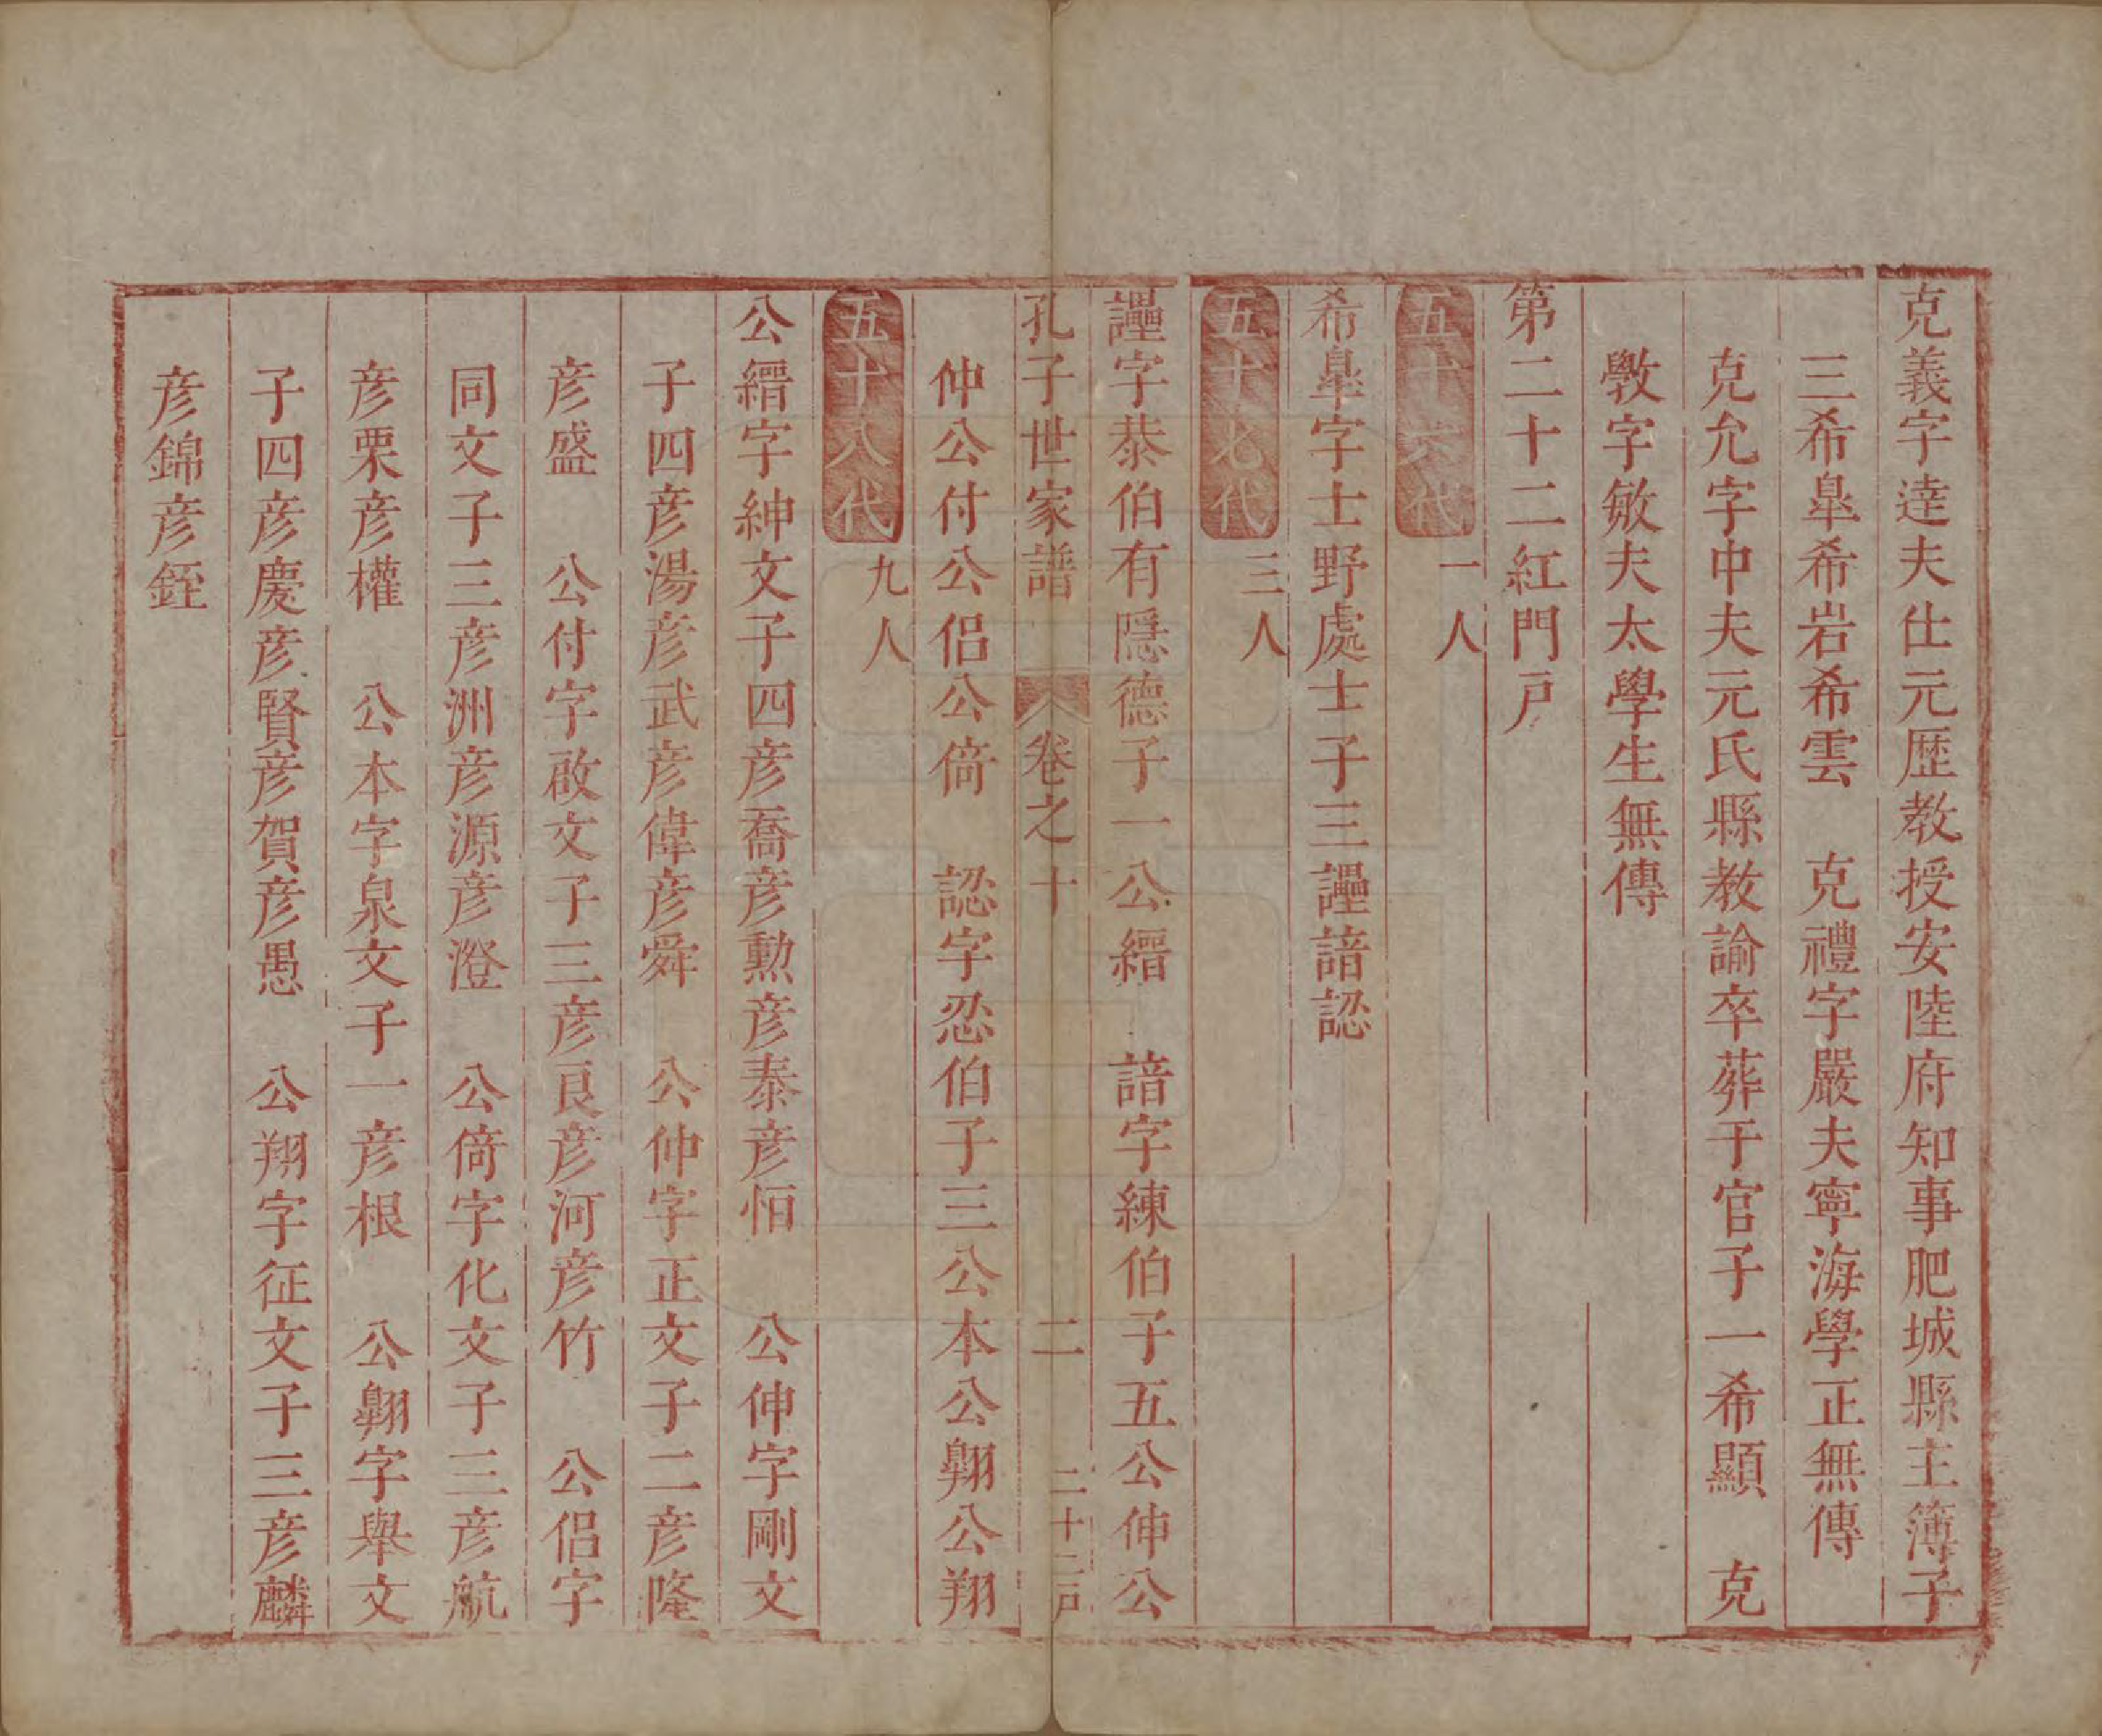 克義字逹夫仕元歴教授安陸府知事肥城縣主簿子
三希臯希岩希雲　克禮字嚴夫寧海學正無傳
克允字中夫元氏縣教諭卒葬于官子一希顯　克
斆字敏夫太學生無傳
第二十二紅門戸
五十六代　一人
希臯字士野處士子三諲諳認
五十七代　三人
諲字恭伯有隠德子一公縉　諳字練伯子五公伸公
孔子世家譜　卷之十　二　二十二戸
仲公付公侣公倚　認字忍伯子三公本公翱公翔
五十八代　九人
公縉字紳文子四彦喬彦勲彦泰彦恒　公伸字剛文
子四彦湯彦武彦偉彦舜　公仲字正文子二彦隆
彦盛　公付字啟文子三彦良彦河彦竹　公侣字
同文子三彦洲彦源彦澄　公倚字化文子三彦航
彦栗彦權　公本字泉文子一彦根　公翱字舉文
子四彦慶彦賢彦賀彦愚　公翔字征文子三彦麟
彦錦彦銍